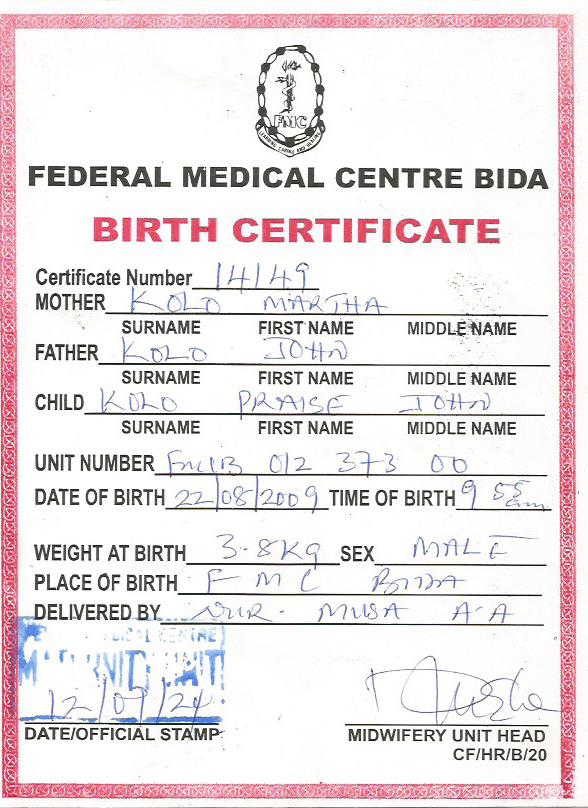 FMC
FEDERAL MEDICAL CENTRE BIDA
BIRTH CERTIFICATE
Certificate Number 14/49
MOTHER KOLO MARTHA
SURNAME FIRST NAME MIDDLE NAME
FATHER KOLO JOHN
SURNAME FIRST NAME MIDDLE NAME
CHILD KOLO PRAISE JOHN
SURNAME FIRST NAME MIDDLE NAME
UNIT NUMBER FMCB 012 373 00
DATE OF BIRTH 22/08/2009 TIME OF BIRTH 9 55am
WEIGHT AT BIRTH 3.8kg SEX MALE
PLACE OF BIRTH F M C BIDA
DELIVERED BY NUR. MUSA A.A
MEDICAL CENTRE
MATERNITY UNIT
12/09/24
DATE/OFFICIAL STAMP
MIDWIFERY UNIT HEAD
CF/HR/B/20